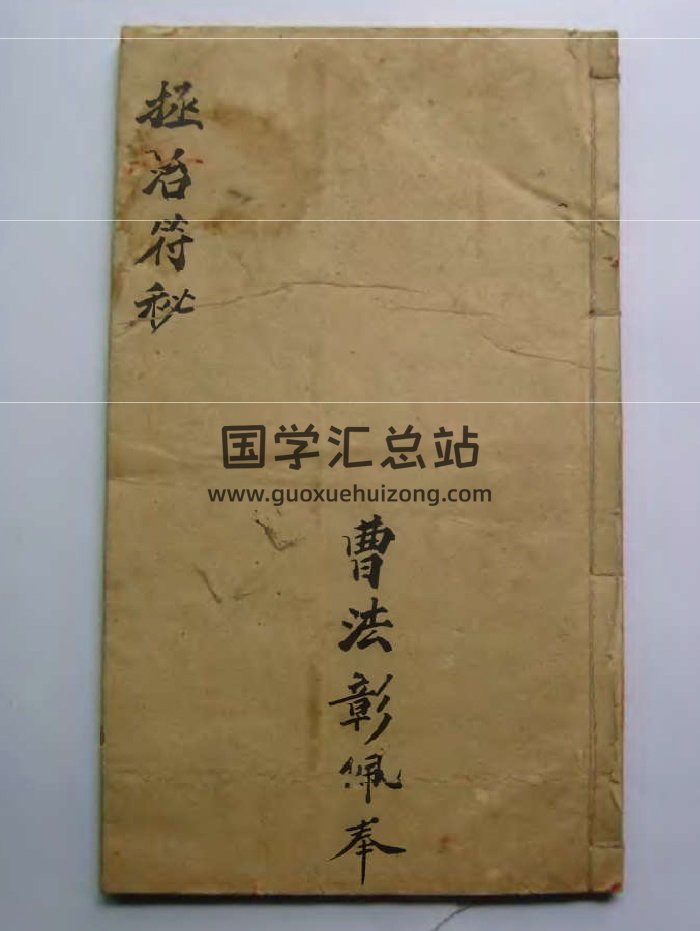 拯治符秘
国学汇总站
www.guoxuehuizong.com
曹法彰佩奉